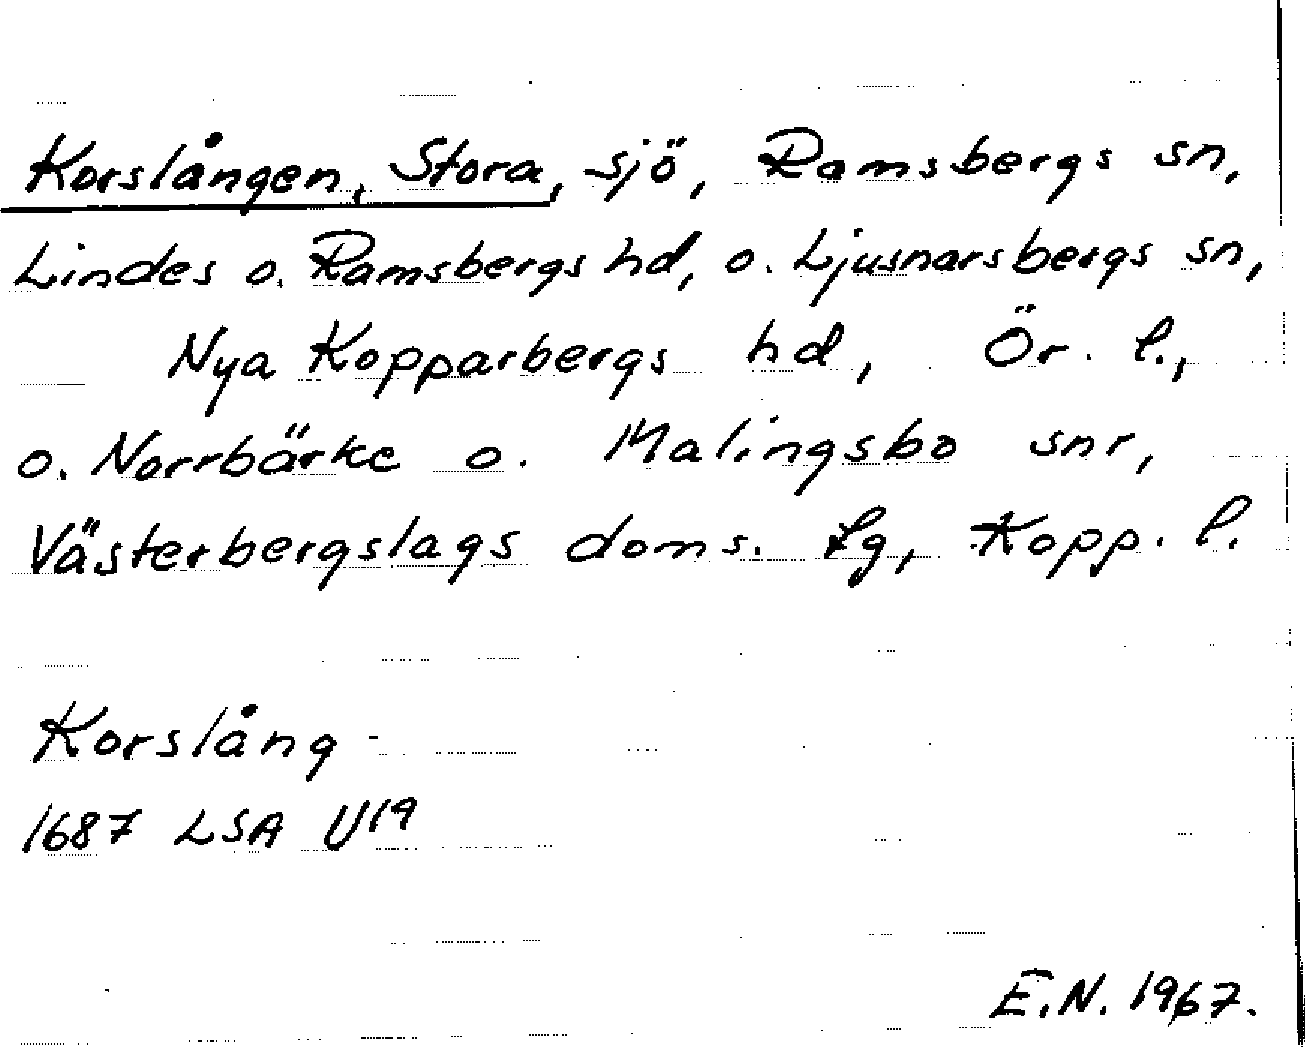 Korslången, Stora, sjö, Ramsbergs sn,
Lindes o. Ramsbergs hd, o. Ljusnarsbergs sn,
Nya Kopparbergs hd, Ör. l.,
o. Norrbärke o. Malingsbo snr,
Västerbergslags doms. lg, Kopp. l.
Korslång -
1687 LSA U19
E.N. 1967.